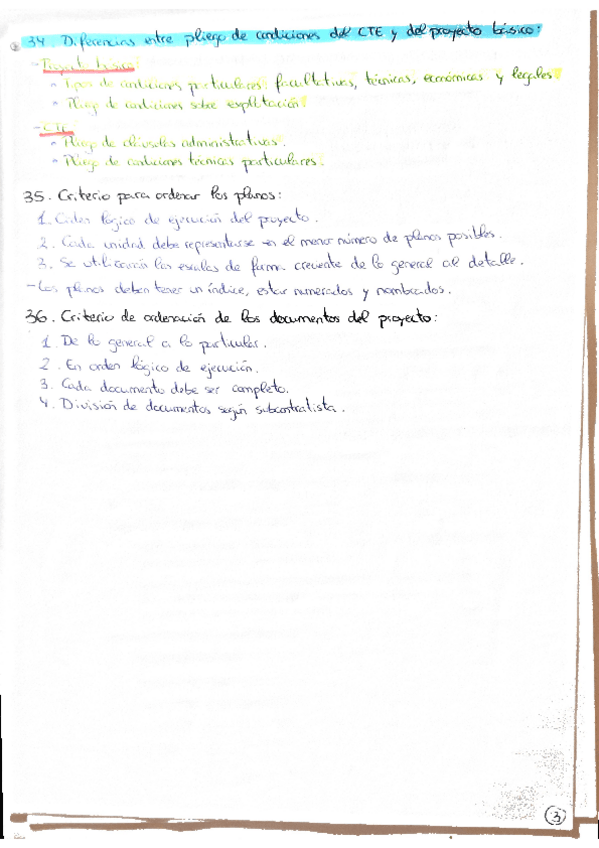 34. Diferencias entre pliego de condiciones del CTE y del proyecto básico:
- Proyecto básico:
◦ Tipos de condiciones particulares: facultativas, técnicas, económicas y legales.
◦ Pliego de condiciones sobre explotación.
- CTE
◦ Pliego de cláusulas administrativas.
◦ Pliego de condiciones técnicas particulares.
35. Criterio para ordenar los planos:
1. Orden lógico de ejecución del proyecto.
2. Cada unidad debe representarse en el menor número de planos posibles.
3. Se utilizarán las escalas de forma creciente de lo general al detalle.
- Los planos deben tener un índice, estar numerados y nombrados.
36. Criterio de ordenación de los documentos del proyecto:
1. De lo general a lo particular.
2. En orden lógico de ejecución.
3. Cada documento debe ser completo.
4. División de documentos según subcontratista.
3